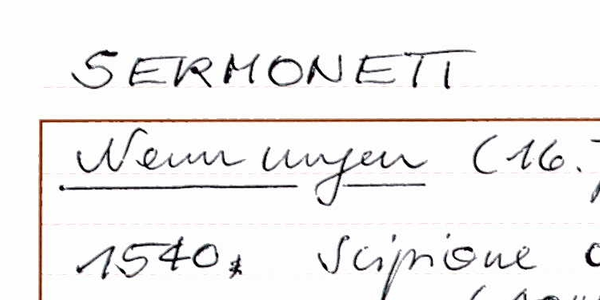 SERMONETT
Nennungen (16.
1540, Scipione